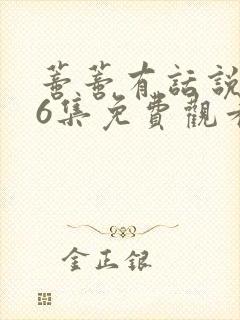 蓄蓄有話說
6集免費觀看
金正銀